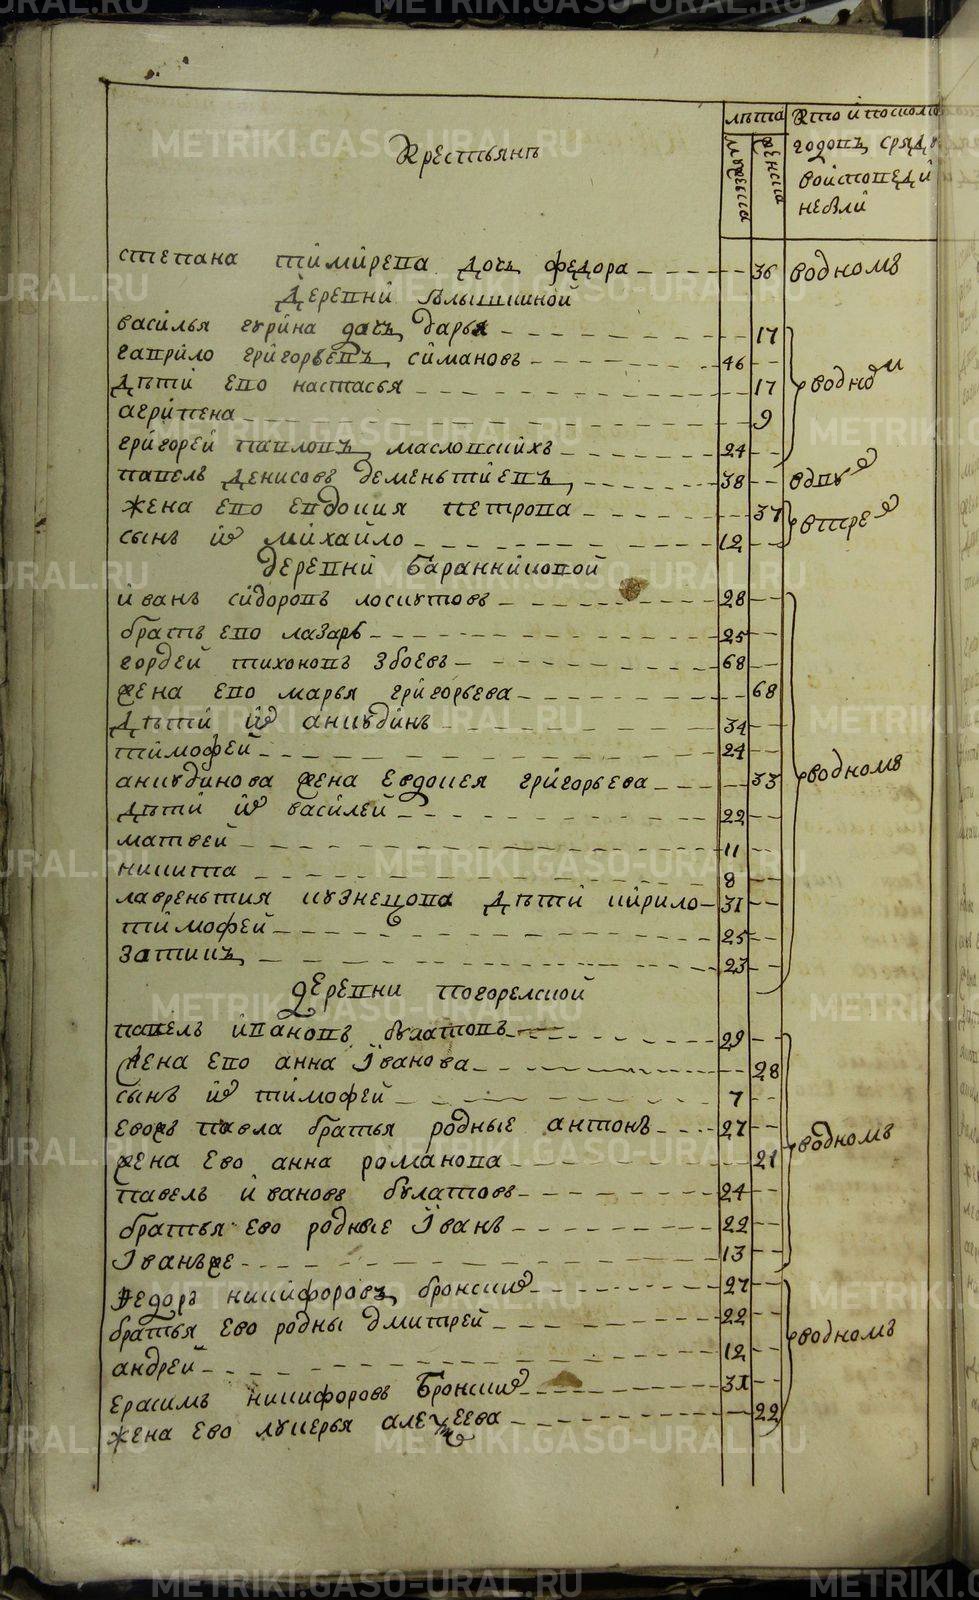 Крестьянъ
лѣта
мужска
женска
Кто и посколко
годовъ сряду
воисповеди
небыли
степана тимирева дочь федора 36 водномъ
деревни
василья гурина дочь дарья 17
гаврило григорьевъ симановъ 46 водном
дѣти ево настасья 17
агрипена 9
григорей павловъ масловскихъ 24
павелъ денисовъ деменьтиевъ 38 вдву
жена ево евдокия петрова 37 втре
сынъ их михайло 12
деревни баранниковой
иванъ сидоровъ лоскутовъ 28
братъ ево лазарь 25
гордей тихоновъ збоевъ 68
жена ево марья григорьева 68
дѣти их аникудинъ 34
тимофей 24
аникудинова жена евдокея григорьева 33 водномъ
дѣти их василей 22
матвей 11
никита 8
лавреньтия кузнецова дѣти кирило 31
тимофей 25
затикъ 23
деревни погорелской
павелъ ивановъ булатовъ 29
жена ево анна іванова 28
сынъ их тимофей 7
евожъ павла братья родные антонъ 27 водномъ
жена ево анна романова 21
павелъ ивановъ булатовъ 24
братья ево родные іванъ 22
іванъже 13
федоръ никифоровъ бронских 27
братья ево родны дмитрей 22 водномъ
андрей 12
ерасимъ никифоровъ бронских 31
жена ево лукерья алексеева 22
METRIKI.GASO-URAL.RU